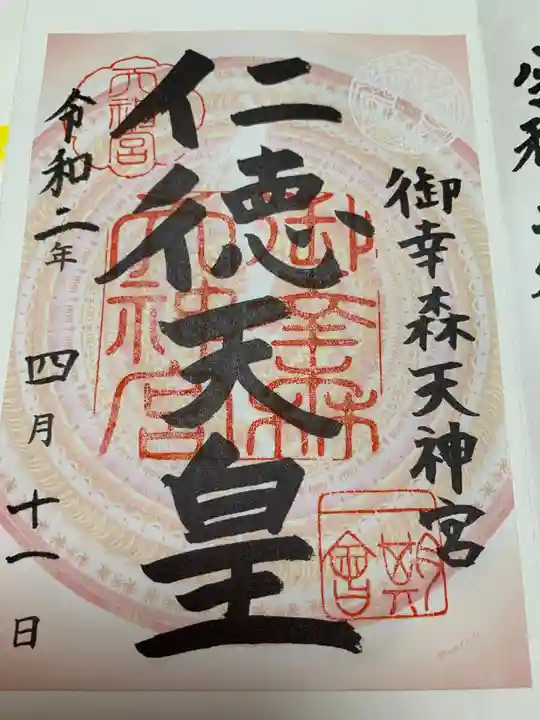 御幸森天神宮
仁徳天皇
令和二年
四月十一日
天神宮
御幸森
天神宮